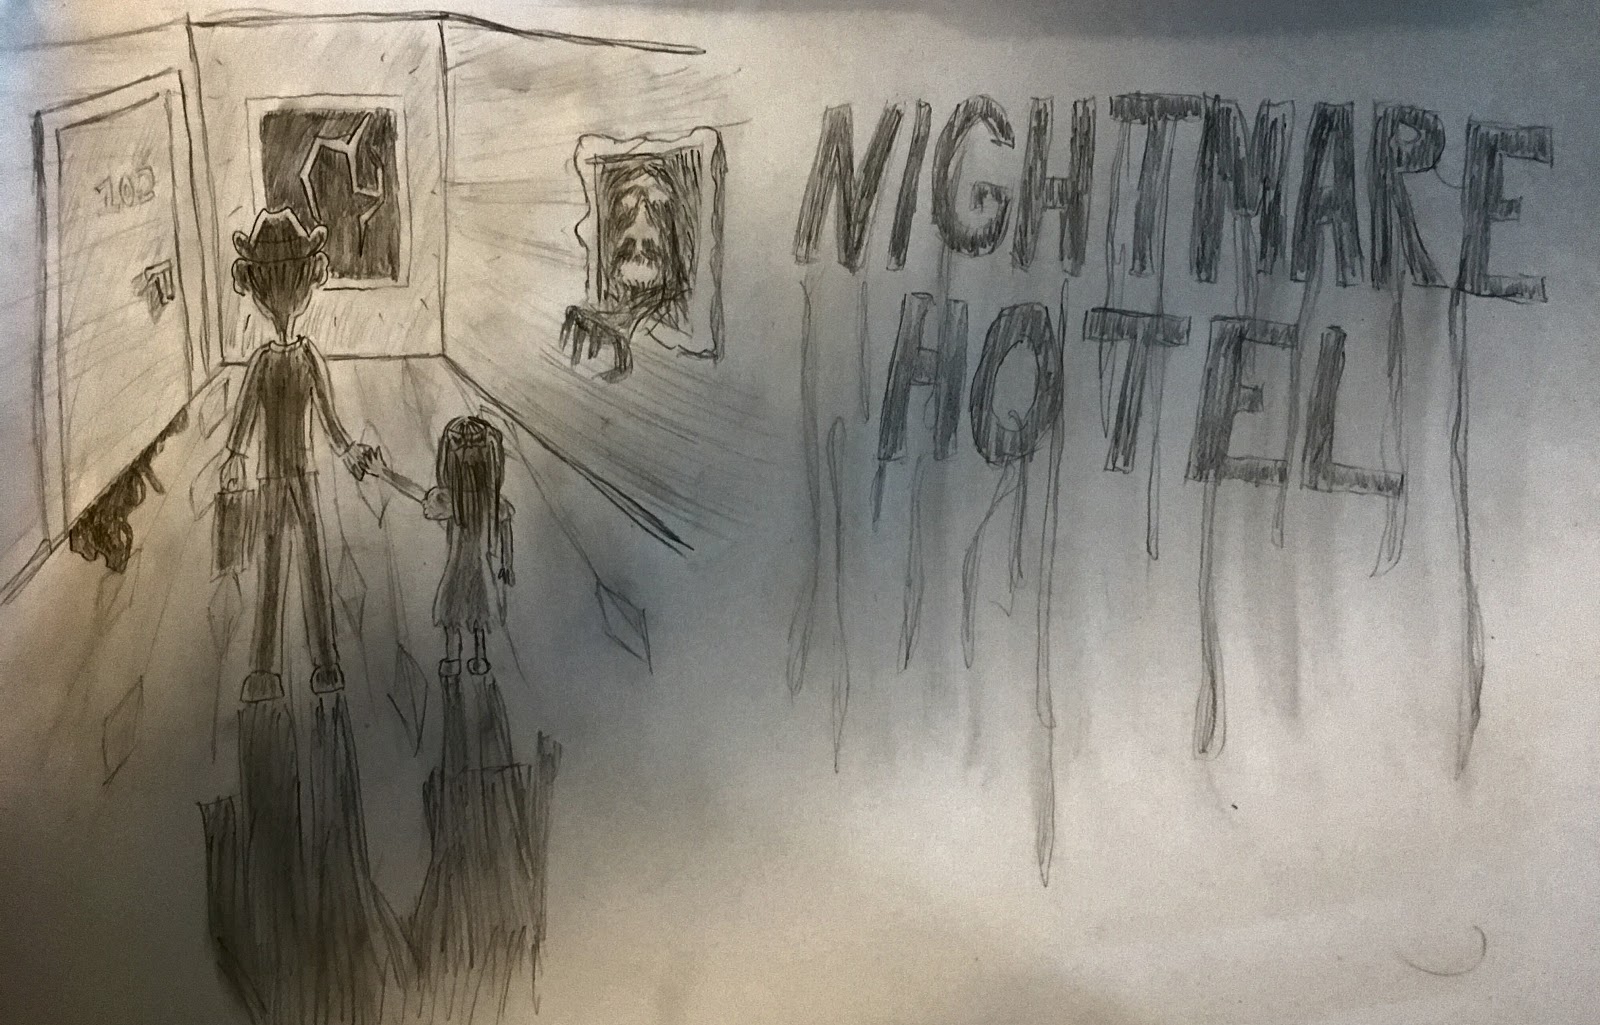 102
NIGHTMARE
HOTEL